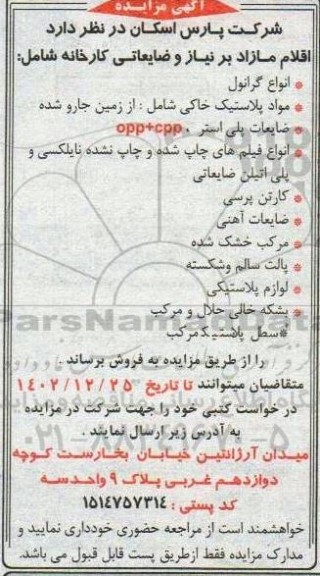 آگهی مزایده
شرکت پارس اسکان در نظر دارد
اقلام مازاد بر نیاز و ضایعاتی کارخانه شامل:
انواع گرانول
مواد پلاستیک خاکی شامل : از زمین جارو شده
ضایعات پلی استر ، opp+cpp
انواع فیلم های چاپ شده و چاپ نشده نایلکسی و
پلی اتیلن ضایعاتی
کارتن پرسی
ضایعات آهنی
مرکب خشک شده
پالت سالم وشکسته
لوازم پلاستیکی
بشکه خالی حلال و مرکب
*سطل پلاستیک مرکب
را از طریق مزایده به فروش برساند .
متقاضیان میتوانند تا تاریخ ۱۴۰۲/۱۲/۲۵
در خواست کتبی خود را جهت شرکت در مزایده
به آدرس زیر ارسال نمایند .
میدان آرژانتین خیابان بخارست کوچه
دوازدهم غربی پلاک ۹ واحد سه
کد پستی : ۱۵۱۴۷۵۷۳۱۴
خواهشمند است از مراجعه حضوری خودداری نمایید و
مدارک مزایده فقط ازطریق پست قابل قبول می باشد.